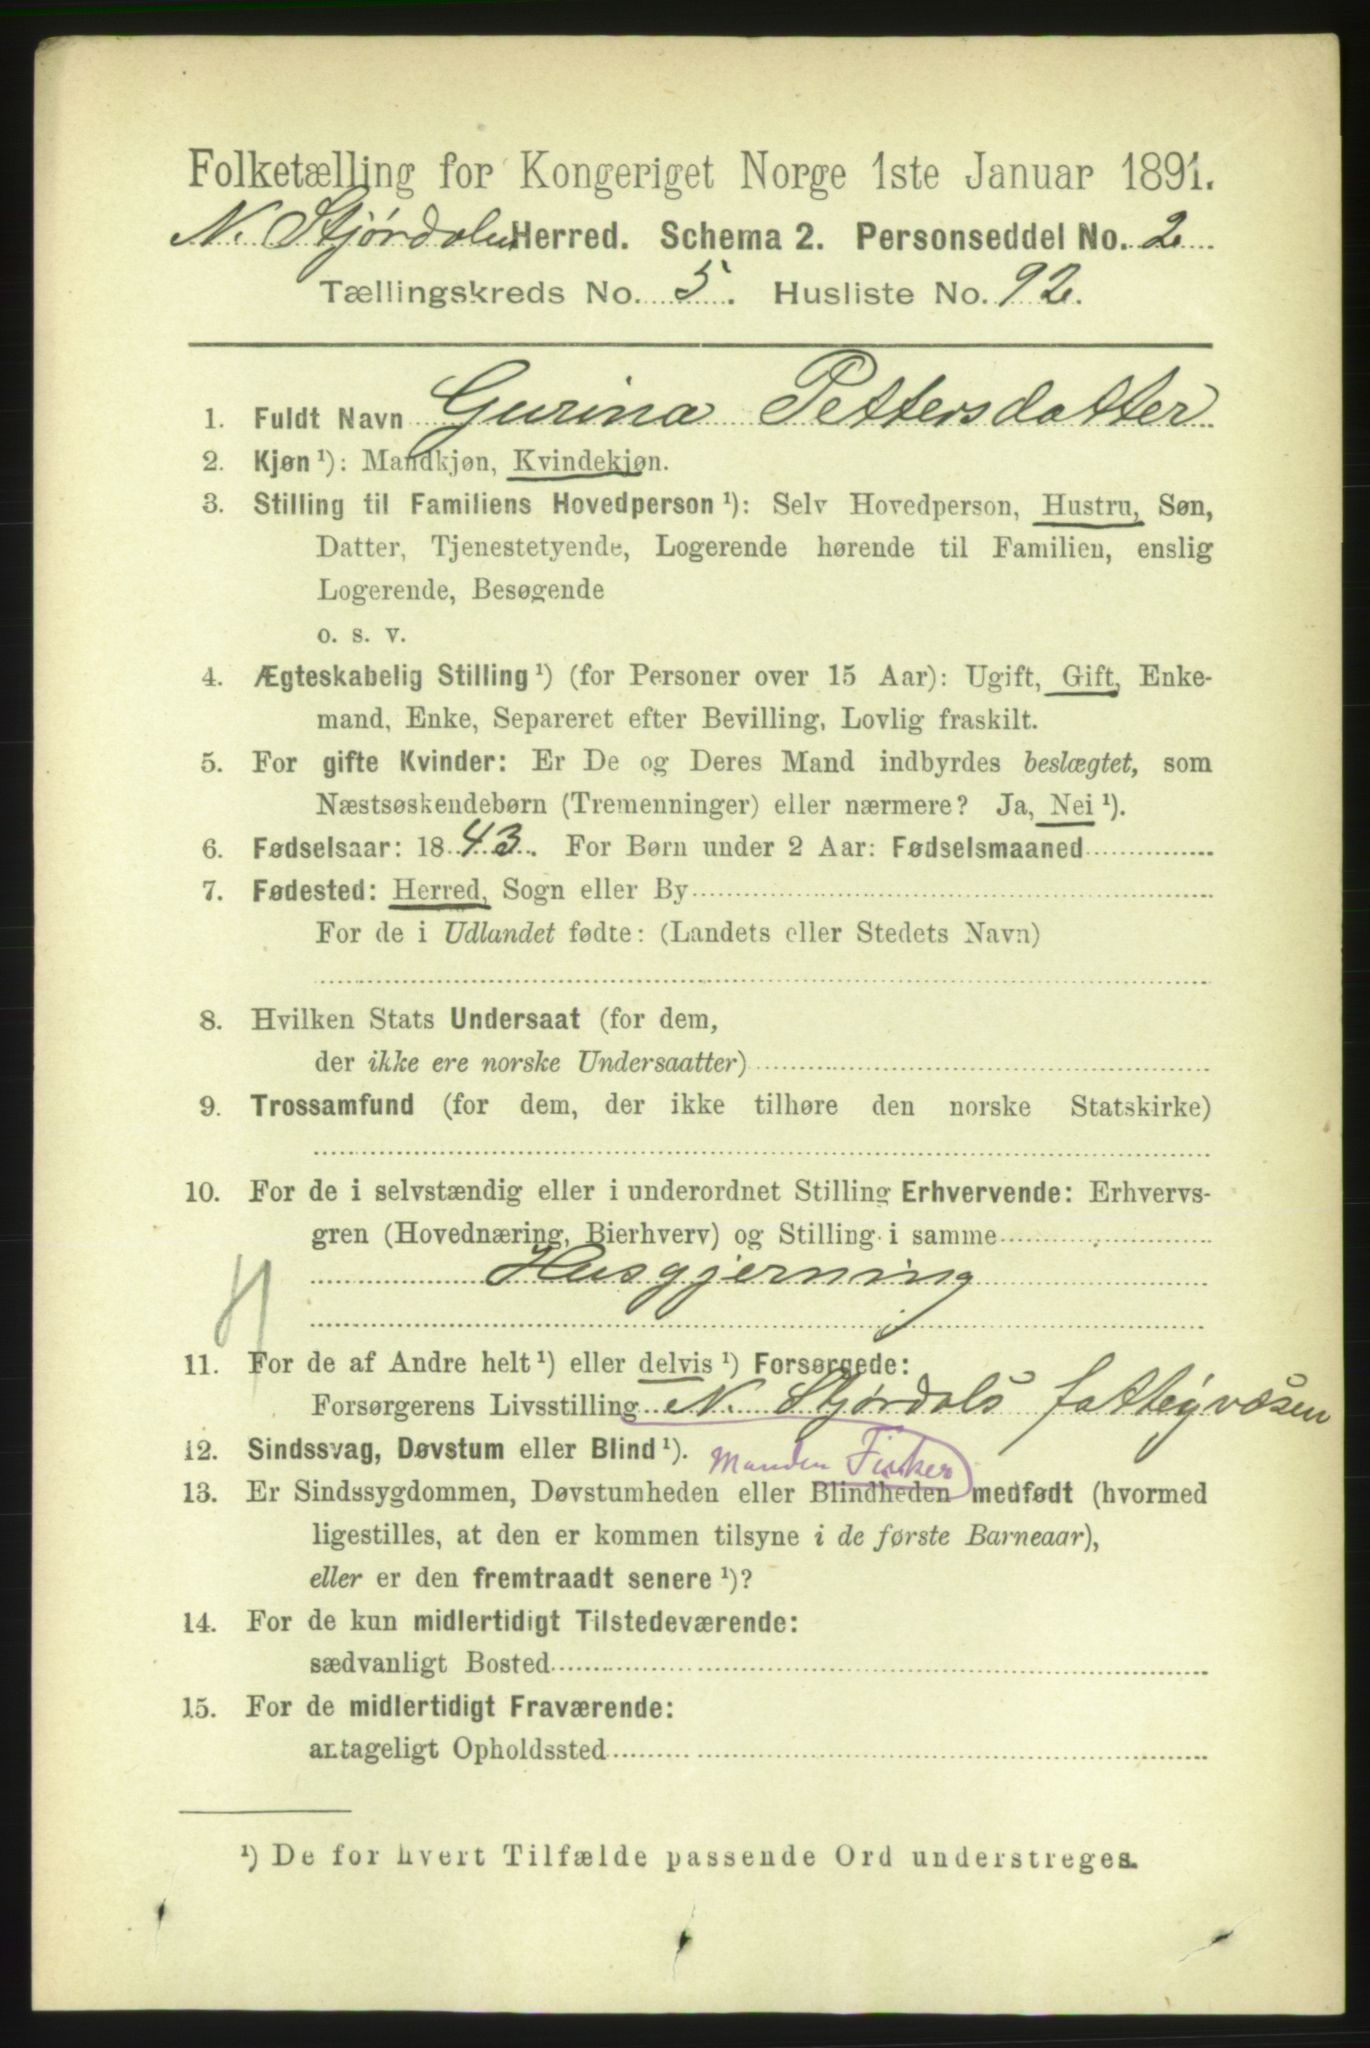 Folketælling for Kongeriget Norge 1ste Januar 1891.
N. Stjørdalen Herred. Schema 2. Personseddel No. 2
Tællingskreds No. 5. Husliste No. 92.
1. Fuldt Navn Gurina Pettersdatter
2. Kjøn ¹): Mandkjøn, Kvindekjøn.
3. Stilling til Familiens Hovedperson ¹): Selv Hovedperson, Hustru, Søn,
Datter, Tjenestetyende, Logerende hørende til Familien, enslig
Logerende, Besøgende
o. s. v.
4. Ægteskabelig Stilling ¹) (for Personer over 15 Aar): Ugift, Gift, Enke-
mand, Enke, Separeret efter Bevilling, Lovlig fraskilt.
5. For gifte Kvinder: Er De og Deres Mand indbyrdes beslægtet, som
Næstsøskendebørn (Tremenninger) eller nærmere? Ja, Nei ¹).
6. Fødselsaar: 1843. For Børn under 2 Aar: Fødselsmaaned
7. Fødested: Herred, Sogn eller By
For de i Udlandet fødte: (Landets eller Stedets Navn)
8. Hvilken Stats Undersaat (for dem,
der ikke ere norske Undersaatter)
9. Trossamfund (for dem, der ikke tilhøre den norske Statskirke)
10. For de i selvstændig eller i underordnet Stilling Erhvervende: Erhvervs-
gren (Hovednæring, Bierhverv) og Stilling i samme
Husgjerning
11. For de af Andre helt ¹) eller delvis ¹) Forsørgede:
Forsørgerens Livsstilling N. Stjørdals fattigvæsen
12. Sindssvag, Døvstum eller Blind ¹). Manden Fisker
13. Er Sindssygdommen, Døvstumheden eller Blindheden medfødt (hvormed
ligestilles, at den er kommen tilsyne i de første Barneaar),
eller er den fremtraadt senere ¹)?
14. For de kun midlertidigt Tilstedeværende:
sædvanligt Bosted
15. For de midlertidigt Fraværende:
antageligt Opholdssted
¹) De for hvert Tilfælde passende Ord understreges.